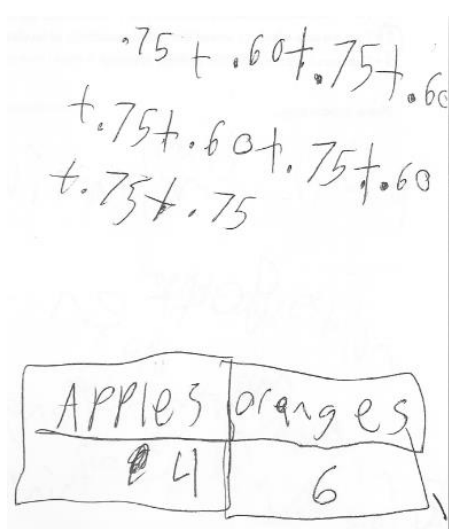 .75 + .60+.75+.60
+.75+.60+.75+.60
+.75+.75
Apples oranges
4 6